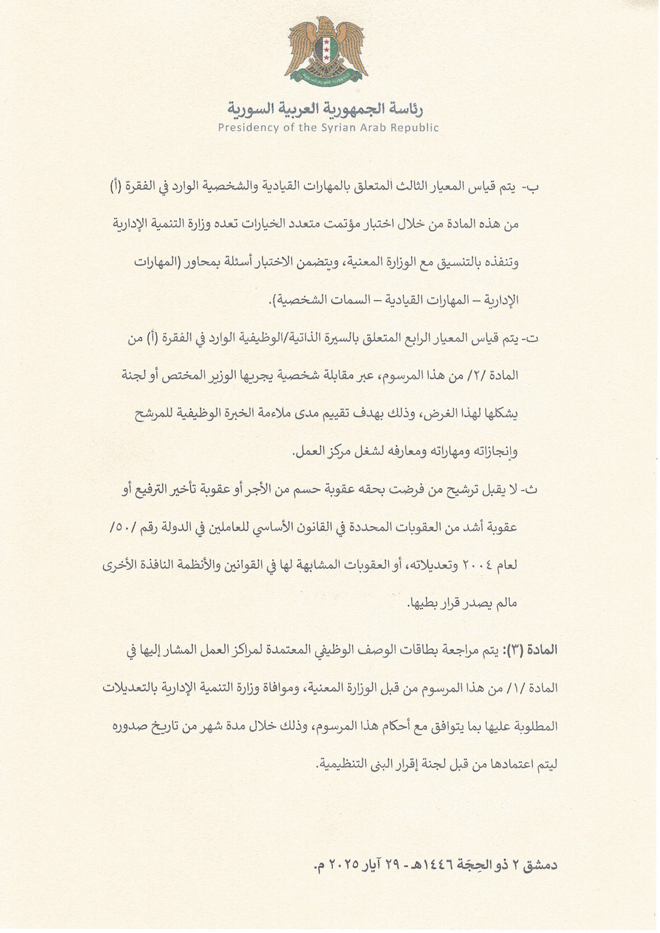 رئاسة الجمهورية العربية السورية
Presidency of the Syrian Arab Republic
ب- يتم قياس المعيار الثالث المتعلق بالمهارات القيادية والشخصية الوارد في الفقرة (أ)
من هذه المادة من خلال اختبار مؤتمت متعدد الخيارات تعده وزارة التنمية الإدارية
وتنفذه بالتنسيق مع الوزارة المعنية، ويتضمن الاختبار أسئلة بمحاور (المهارات
الإدارية – المهارات القيادية – السمات الشخصية).
ت- يتم قياس المعيار الرابع المتعلق بالسيرة الذاتية/الوظيفية الوارد في الفقرة (أ) من
المادة /٢/ من هذا المرسوم، عبر مقابلة شخصية يجريها الوزير المختص أو لجنة
يشكلها لهذا الغرض، وذلك بهدف تقييم مدى ملاءمة الخبرة الوظيفية للمرشح
وإنجازاته ومهاراته ومعارفه لشغل مركز العمل.
ث- لا يقبل ترشيح من فرضت بحقه عقوبة حسم من الأجر أو عقوبة تأخير الترفيع أو
عقوبة أشد من العقوبات المحددة في القانون الأساسي للعاملين في الدولة رقم /٥٠/
لعام ٢٠٠٤ وتعديلاته، أو العقوبات المشابهة لها في القوانين والأنظمة النافذة الأخرى
مالم يصدر قرار بطيها.
المادة (٣): يتم مراجعة بطاقات الوصف الوظيفي المعتمدة لمراكز العمل المشار إليها في
المادة /١/ من هذا المرسوم من قبل الوزارة المعنية، وموافاة وزارة التنمية الإدارية بالتعديلات
المطلوبة عليها بما يتوافق مع أحكام هذا المرسوم، وذلك خلال مدة شهر من تاريخ صدوره
ليتم اعتمادها من قبل لجنة إقرار البنى التنظيمية.
دمشق ٢ ذو الحِجَة ١٤٤٦هـ - ٢٩ آيار ٢٠٢٥ م.